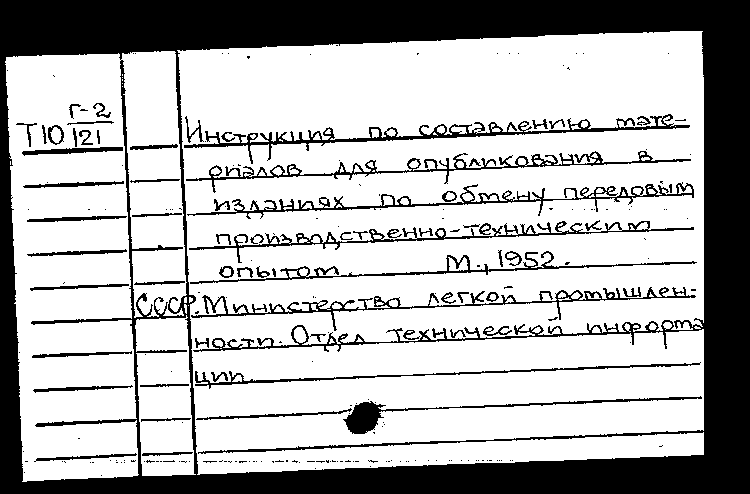 Т10 Г-2/121
Инструкция по составлению мате-
риалов для опубликования в
изданиях по обмену передовым
производственно-техническим
опытом. М., 1952.
СССР. Министерство легкой промышлен-
ности. Отдел технической информа
ции.